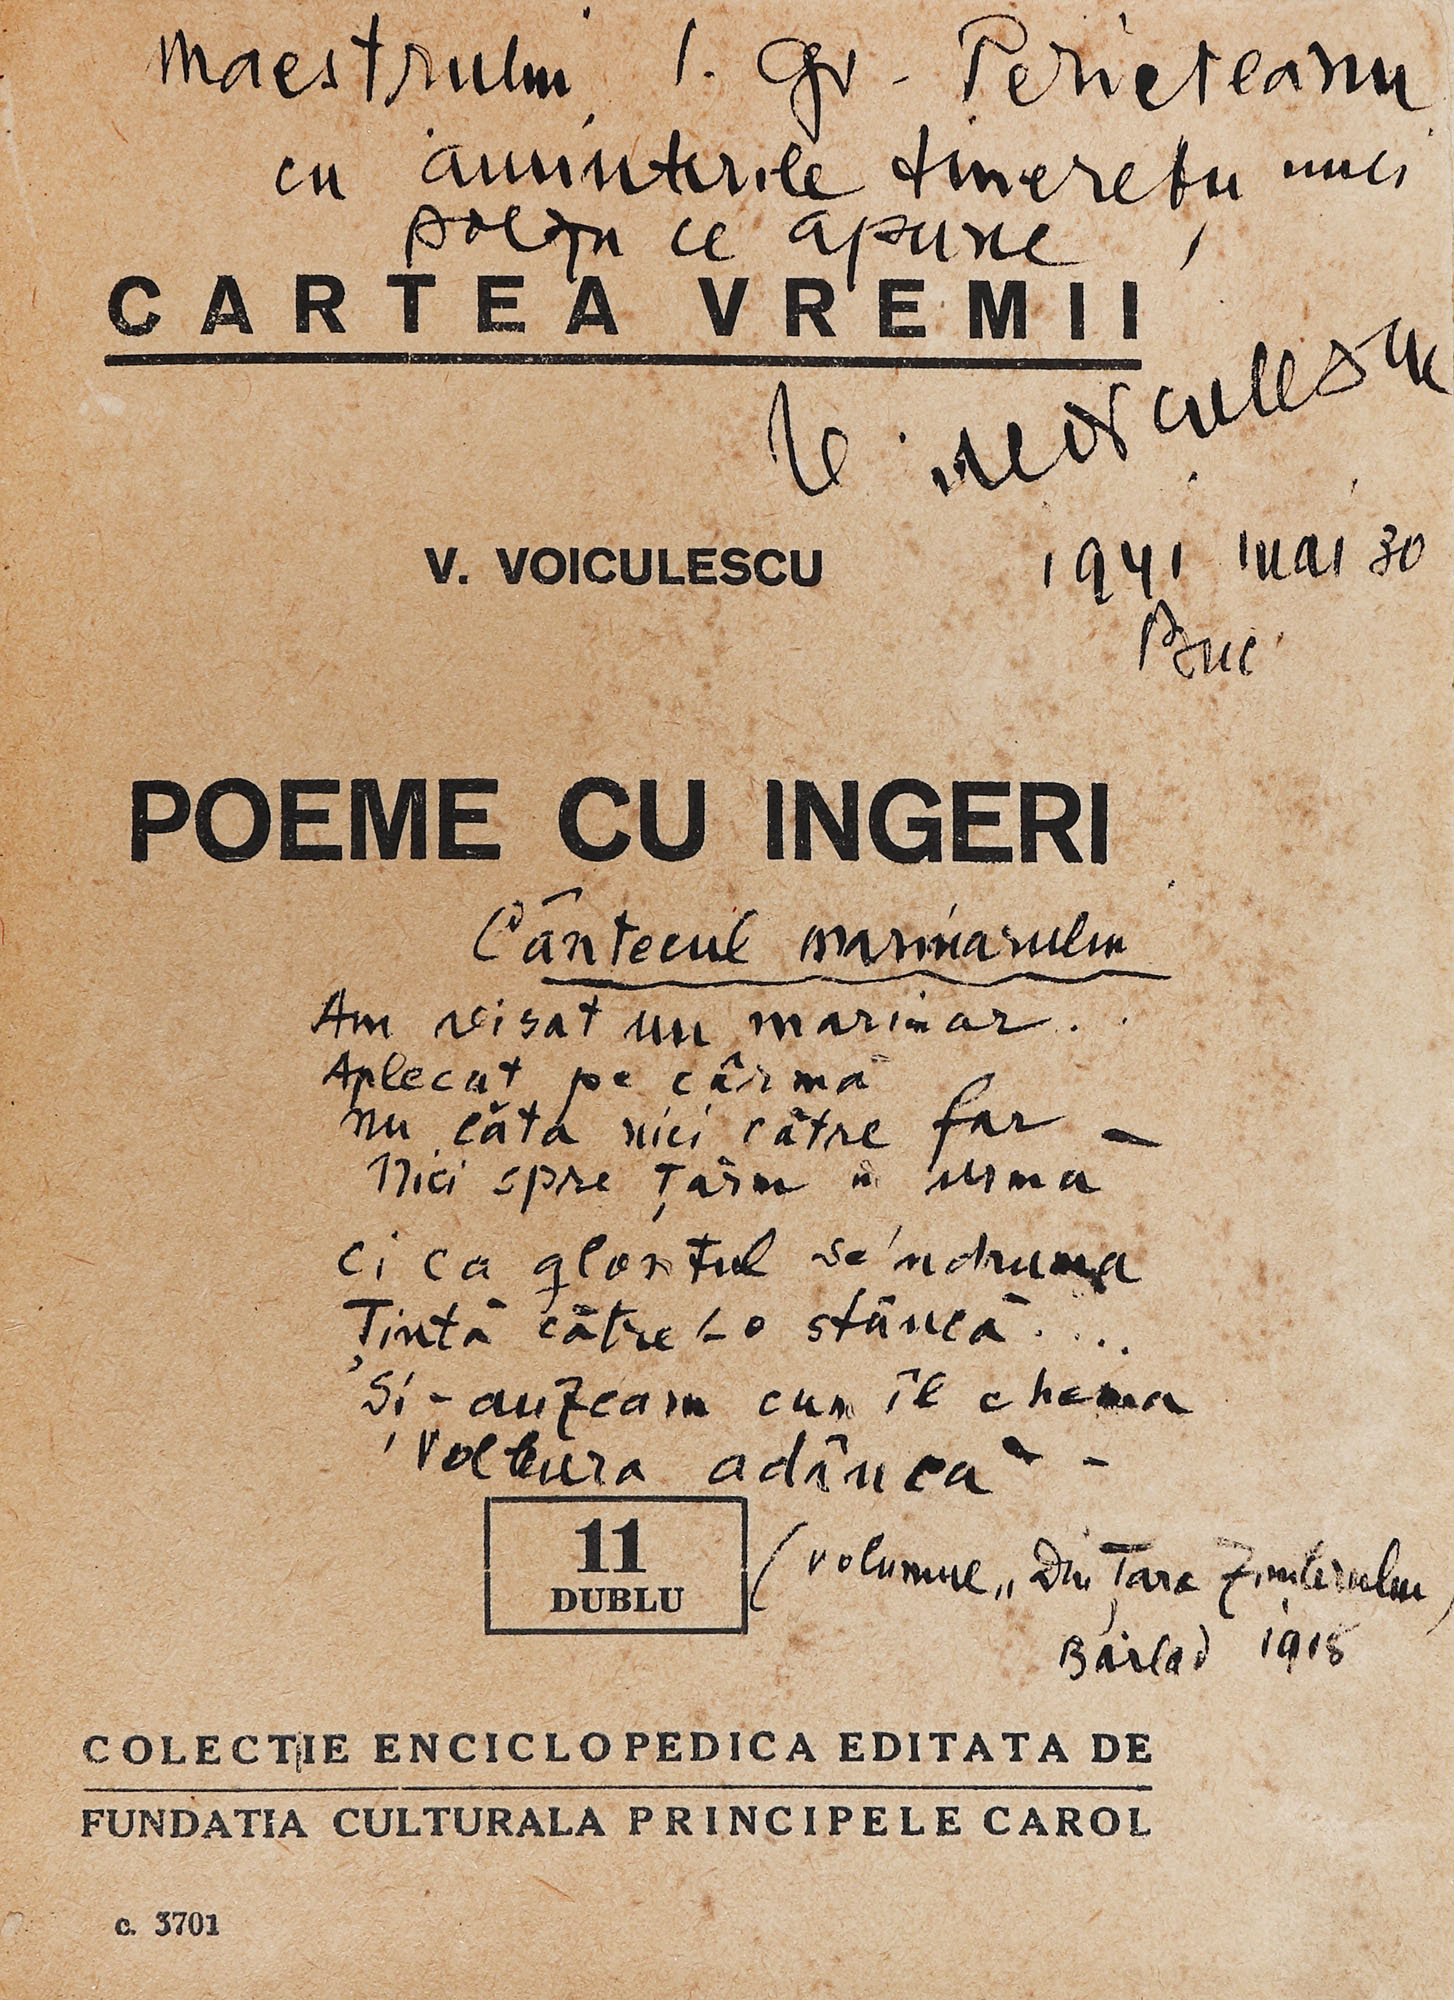 Maestrului I. Gr. Perieteanu
cu amintirile tinerețu unui
poetu ce apune,
CARTEA VREMII
V. Voiculescu
V. VOICULESCU
1941 mai 30
Buc
POEME CU INGERI
Cântecul marinarului
Am visat un marinar..
Aplecat pe cârmă
Nu căta nici către far –
Nici spre țărm urmă
ci ca glonțul se'ndruma
Țintă către-o stâncă...
Și-auzeam cum îl chema
Volbura adâncă -
11
DUBLU
(volumul „Din Țara Zimbrului
Bârlad 1918
COLECTIE ENCICLOPEDICA EDITATA DE
FUNDATIA CULTURALA PRINCIPELE CAROL
c. 3701